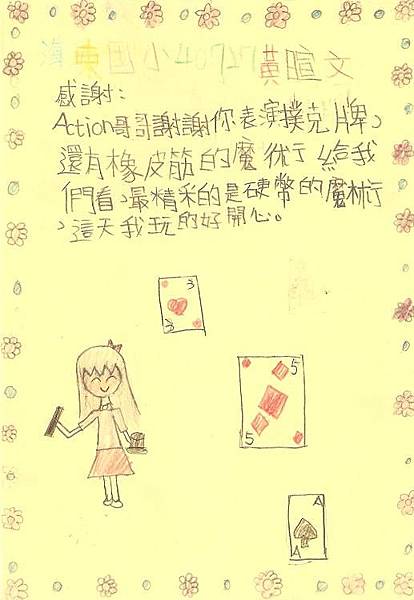 海東國小40727黃暄文
感謝:
Action哥哥謝謝你表演撲克牌、
還有橡皮筋的魔術給我
們看、最精采的是硬幣的魔術
、這天我玩的好開心。
3
3
5
5
A
A